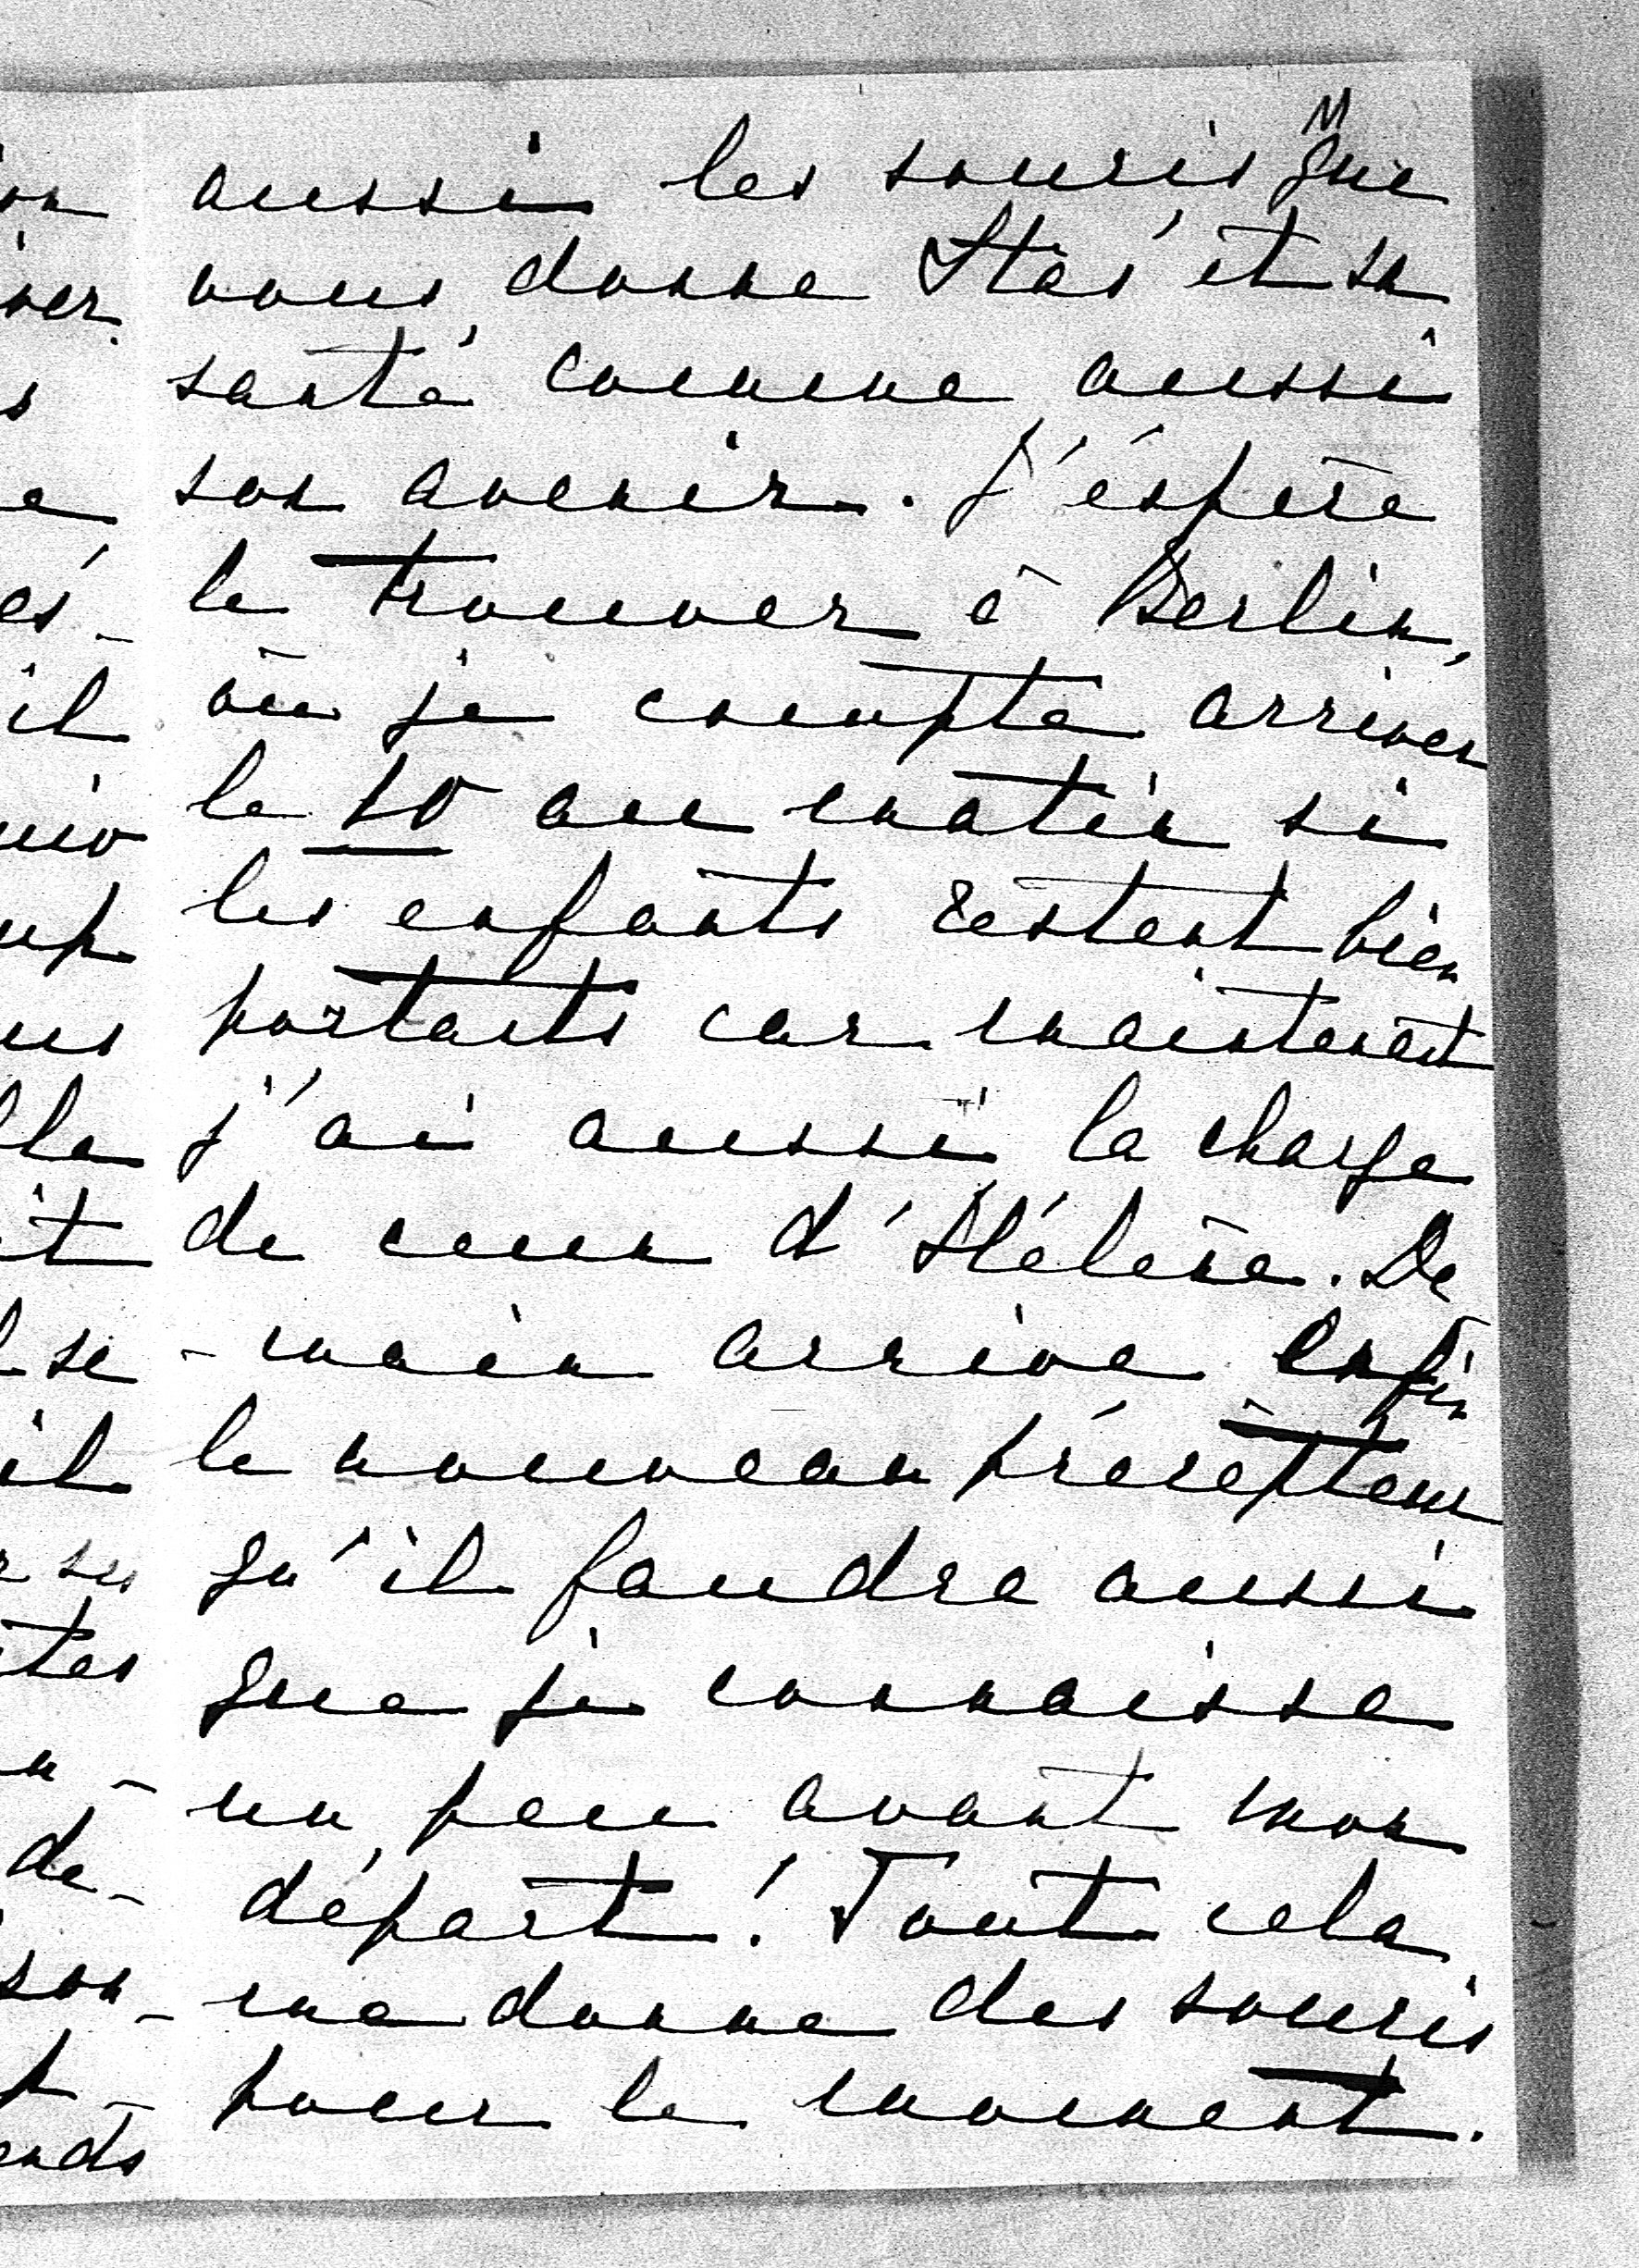 aussi les souris que
nous donne Stas' et sa
santé comme aussi
son avenir. J'éspère
le trouver à Berlin,
où je compte arriver
le 10 au matin si
les enfants restent bien
portants car maintenant
j'ai aussi la charge
de ceux d'Hélène. De
-main arrive enfin
le nouveau précepteur
qu'il faudra aussi
que je connaisse
un peu avant mon
départ! Tout cela
me donne des souris
pour le moment.